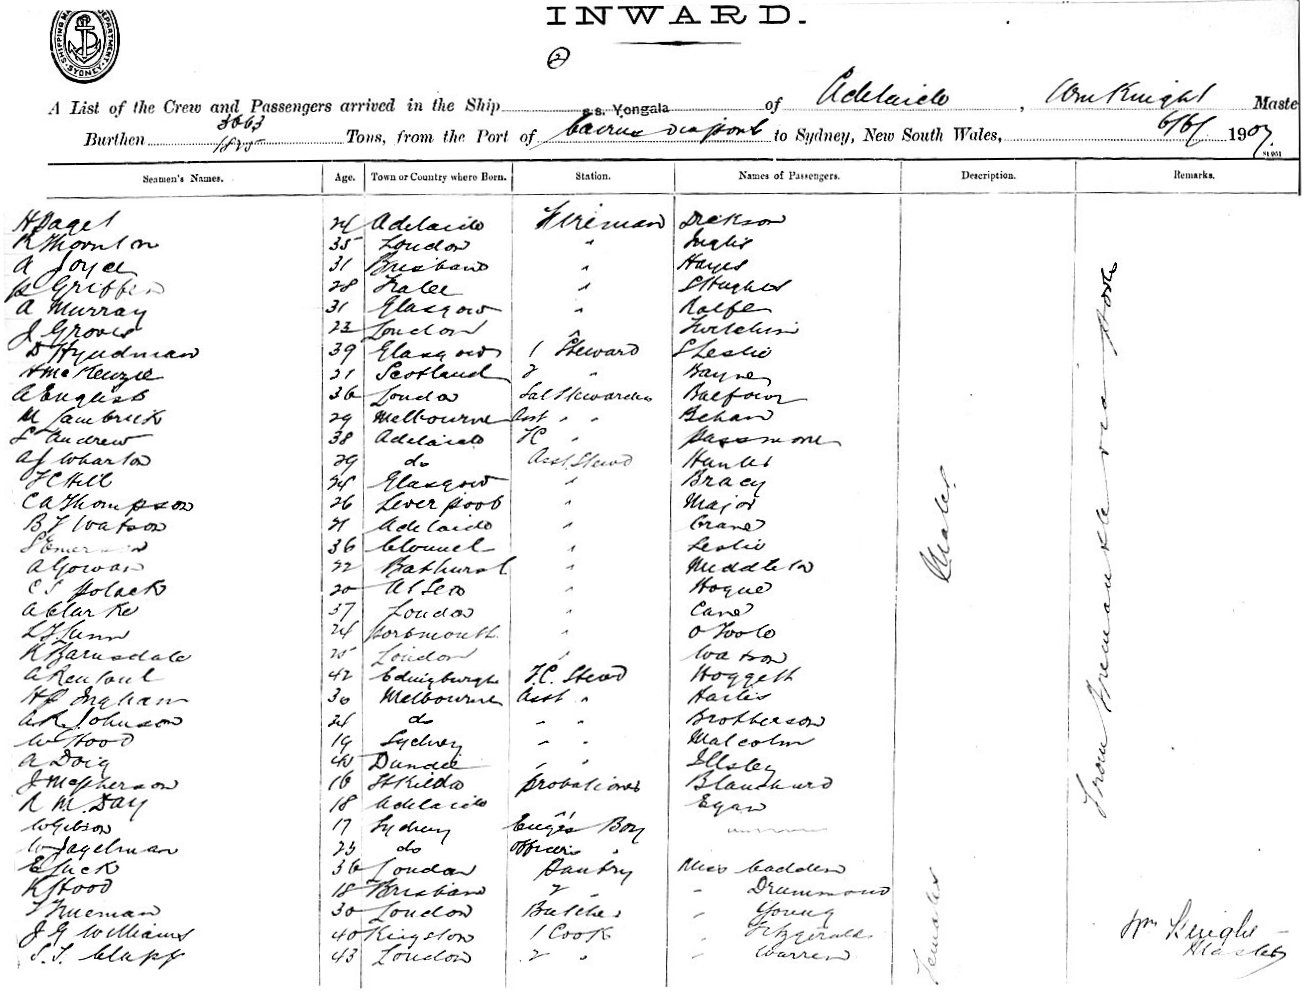 SHIPPING MASTER'S DEPARTMENT. SYDNEY
INWARD.
2
A List of the Crew and Passengers arrived in the Ship s.s. Yongala of Adelaide, Wm Knight Maste
Burthen 3663 1825 Tons, from the Port of Cairns via ports to Sydney, New South Wales, 6/6/ 1907.
Seamen's Names. Age. Town or Country where Born. Station. Names of Passengers. Description. Remarks.
H Paget 24 Adelaide Fireman Dickson
R Thornton 35 London " Inglis
A Joyce 31 Brisbane " Hayes
P Griffen 28 Tralee " S Hughes
A Murray 31 Glasgow " Rolfe
J Groves 23 London "
D Hyndman 39 Glasgow 1 Steward S Leslie
H McKenzie 31 Scotland 2 " Bayne
A English 36 London Sal Stewardess Balfour
M Lambrick 29 Melbourne Asst " " Behan
L Andrew 38 Adelaide FC " Passmore
A J Wharton 29 do Asst Stewd Hunter
F C Hill 24 Glasgow " Bracy
C A Thompson 26 Liverpool " Major
B T Watson 21 Adelaide " Crane
S 36 Clonmel " Leslie
A Gowan 22 Bathurst " Middleton
C S Polack 20 " Hogue
A Clarke 37 London " Cane
L F Lunn 24 Portsmouth " O Toole
R Barnsdale 25 London " Watson
A 42 Edinburgh F.C. Stewd Hoggett
H P Ingham 30 Melbourne Asst "
A R Johnson 21 do " " Brotherson
W Hood 19 Sydney " " Malcolm
A Doig 40 Dundee " " Illsley
J McPherson 16 St Kilda Probationer Blanchard
R M Day 18 Adelaide " Egan
W Gibson 17 Sydney Engrs Boy
W Jagelman 23 do Officers "
E Luck 36 London Pantry Miss Cadden
R Hood 18 Brisbane 2 " " Drummond
T Trueman 30 London Butcher " Young
J G Williams 40 Kingston 1 Cook " Fitzgerald
S. S. Clapp 43 London 2 " " Warren
Males
Females
From Fremantle via ports
Wm Knight
Master